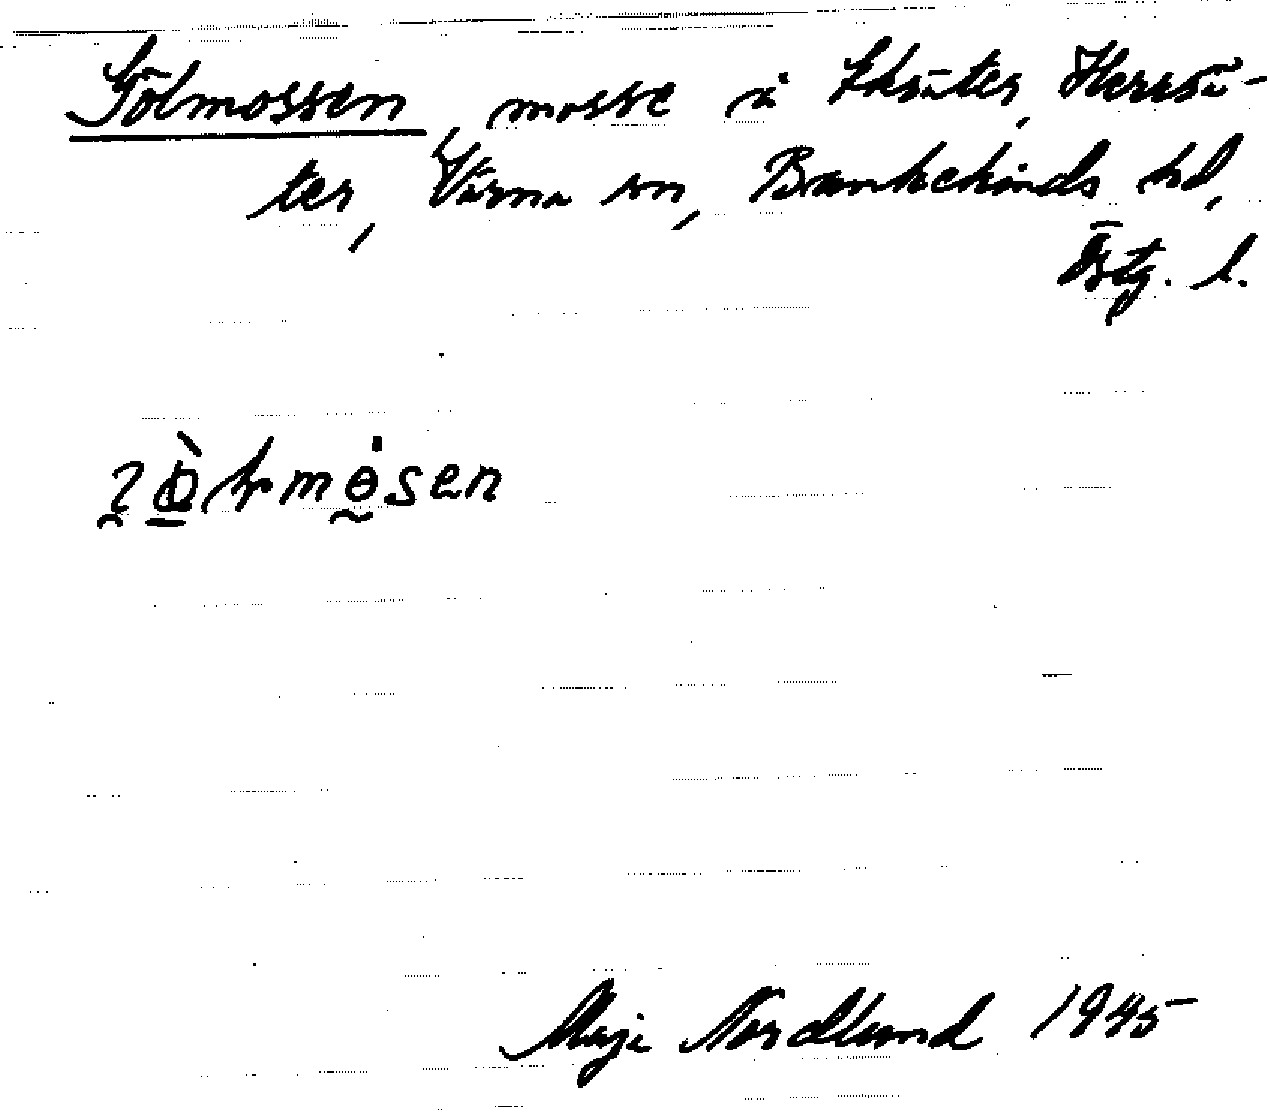 Gölmossen, mosse å Eksäter, Herrsä-
ter, Värna sn, Bankekinds hd,
Östg. l.
Maja Nordlund 1945